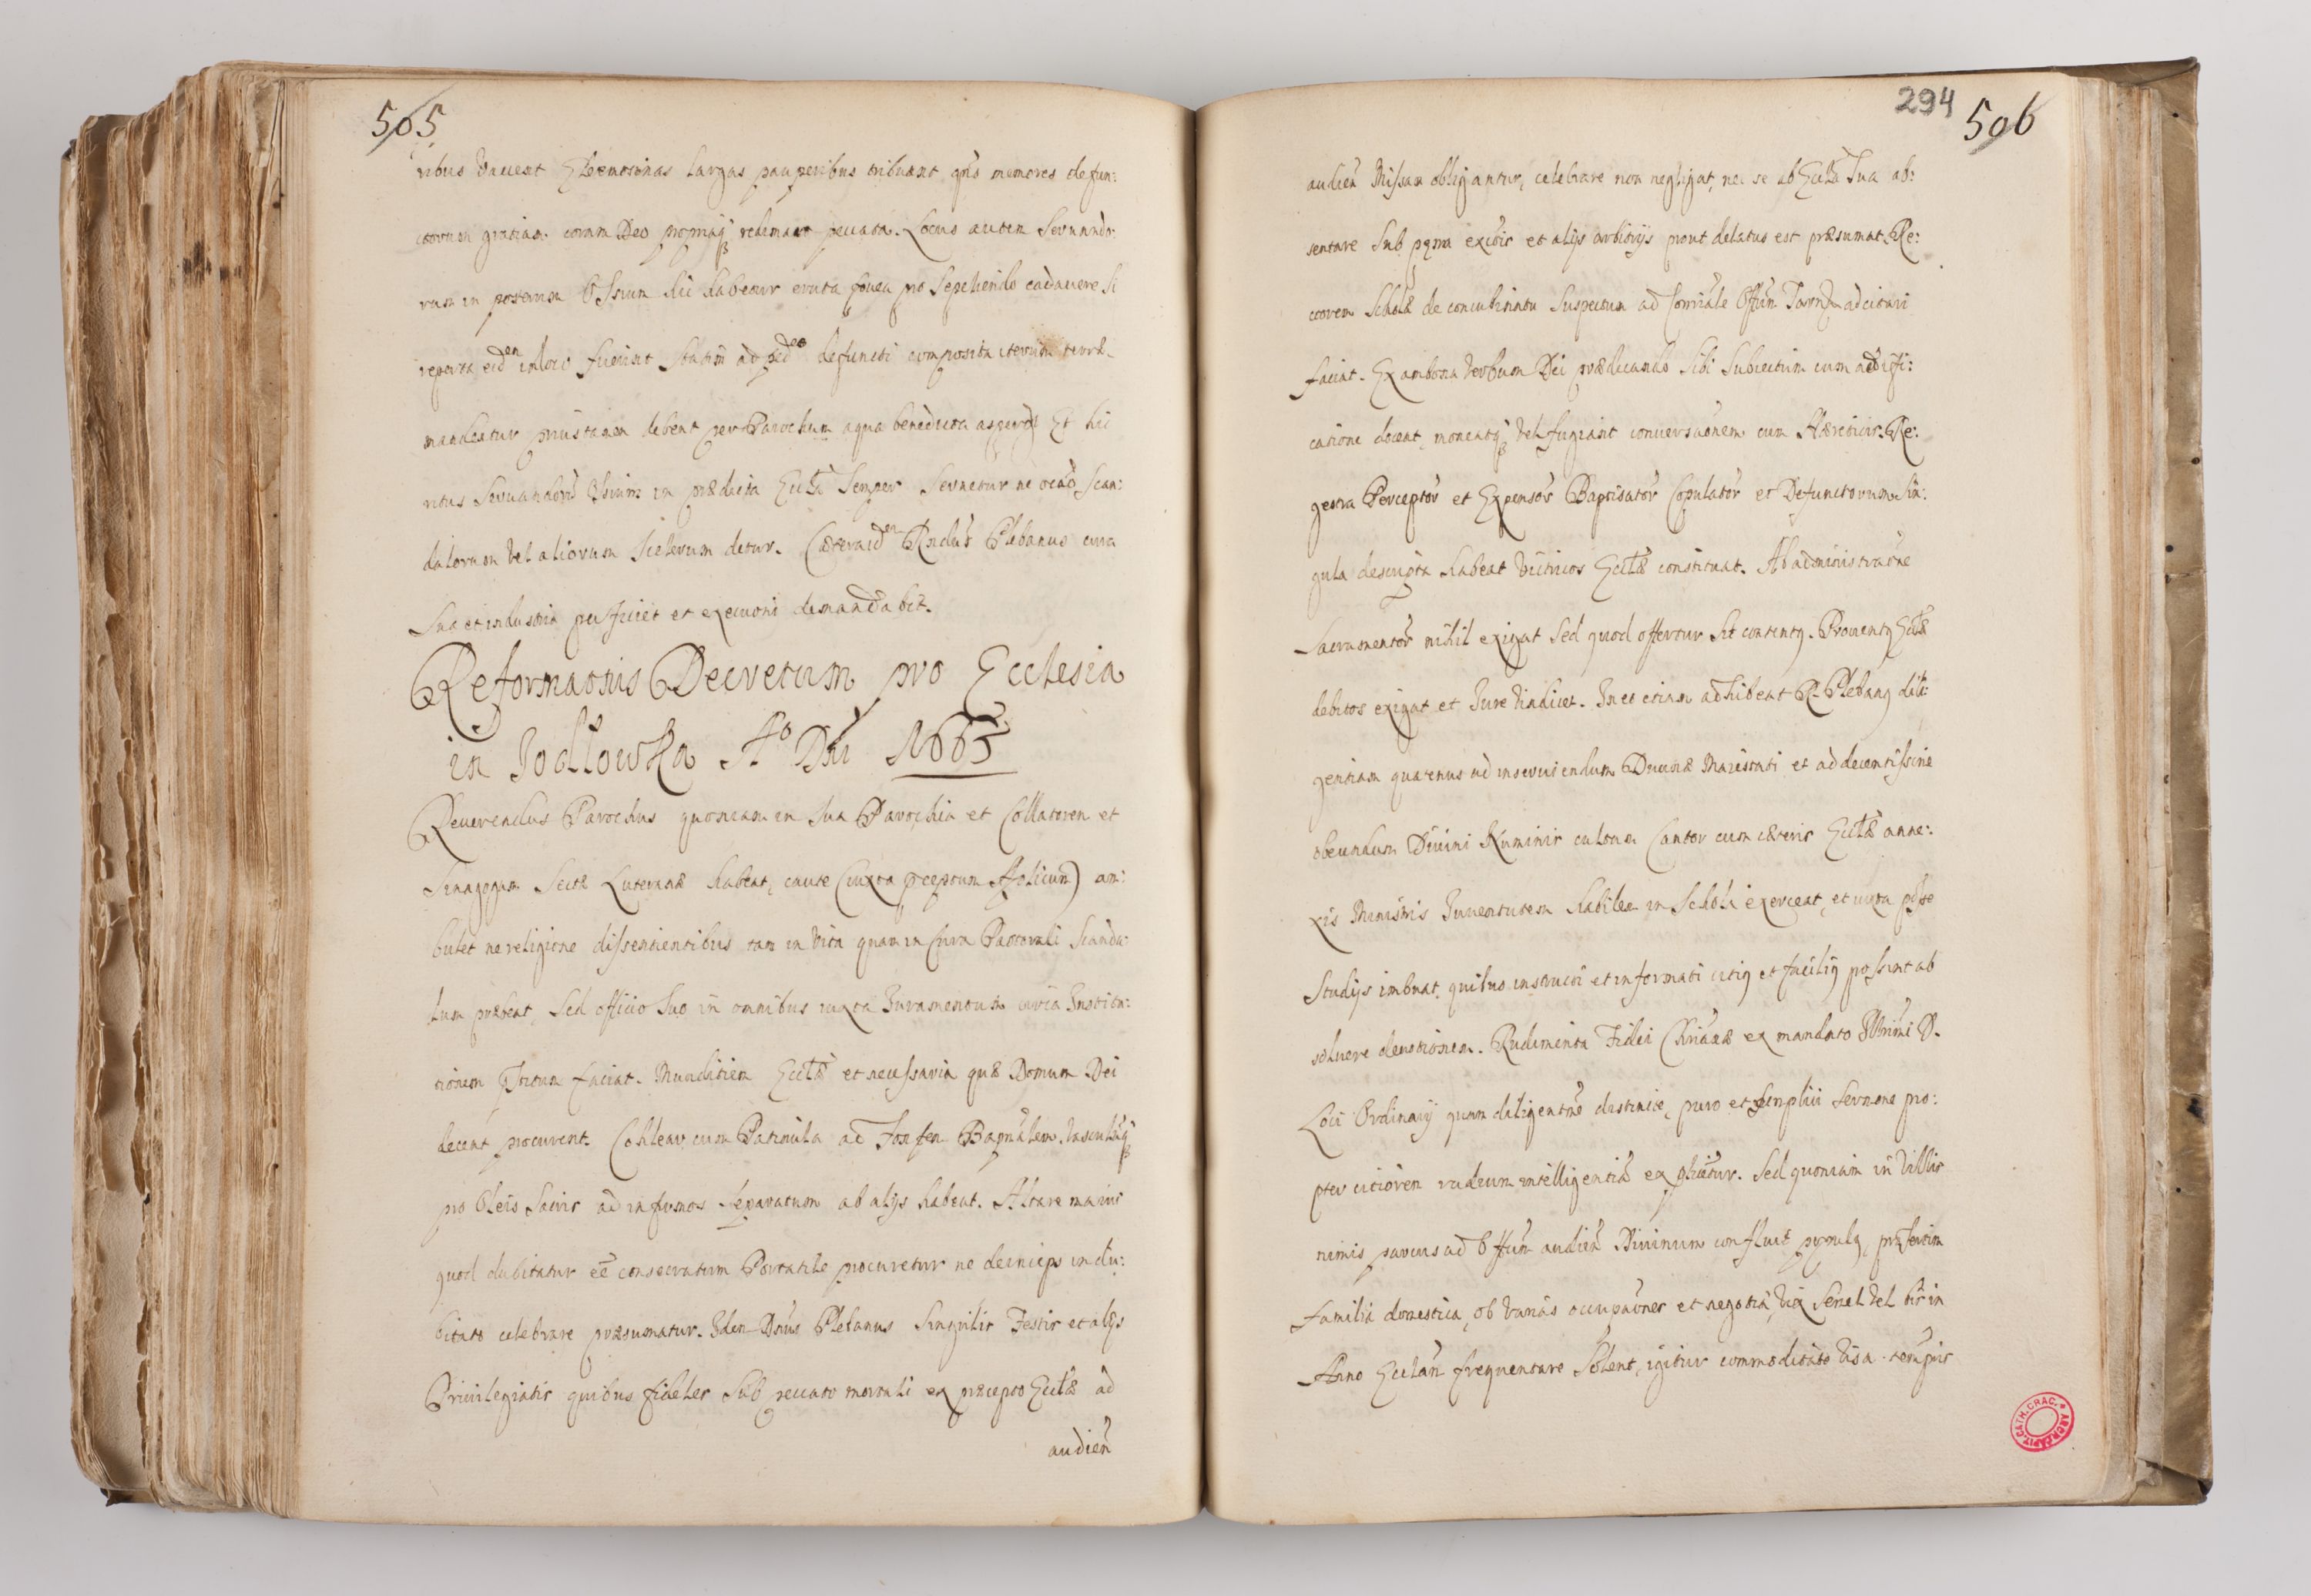 505
ribus vacent Elemosinas largas pauperibus tribuant qns memores defun:
ctorum gratiam coram Deo redimant peccata. Locus autem Servando:
rum in posterum Ossium hic habeatur eruta fovea pro Sepeliendo cadavere si
reperta eid en in loco fuerint Statim ad defuncti composita iterum terræ
mandentur prius tamen debent per Parochum aqua benedicta aspergi Et hic
ritus Servandorũ Ossium in prædicta Eccla Semper Servetur ne occão Scan:
dalorum vel aliorum Scelerum detur. Cæteraid en Rndus Plebanus cura
Sua et industria perficiet et executioni demandabit.
Reformationis Decretum pro Ecclesia
in Jodłowka Aº Dni 1665
Reverendus Parochus quoniam in sua Parochia et Collatorem et
Sinagogam Sectæ Luteranæ habeat, caute (iuxta pceptum Aplicum) am:
bulet ne religione dissentientibus tam in vita quam in Cura Pastorali Scanda:
lum præbeat, Sed officio Suo in omnibus iuxta Juramentum circa Institu:
tionem faciat. Munditiem Ecclæ et necessaria quæ Domum Dei
decent procuret. Cohlear cum Patinula ad Fontem Bapmalem. Vasculũq
pro Oleis Sacris ad infirmos Separatum ab alijs habeat. Altare maius
quod dubitatur eẽ consecratum Portatile procuretur ne deinceps in du:
bitato celebrare præsumatur. Idem Dnus Plebanus Singulis Festis et alijs
Privilegiatis quibus fideles Sub peccato mortali ex præcepto Ecclæ ad
audien
294 506
audien Missam obligantur, celebrare non negligat, nec se ab Eccla Sua ab:
sentare Sub pæna excois et alijs arbitrijs prout delatus est præsumat. Re:
ctorem Scholæ de concubinatu Suspectum ad Offm Tarn adcitari
faciat. Ex ambona Verbum Dei prædicando Sibi Subiectum cum ædifi:
catione doceat, moneatq Vel fugiant conversaonem cum Hæreticis. Re:
gestra Perceptor et Expensor Baptisator Copulator et Defunctorum Sin:
gula descripta habeat Victricos Ecclæ constituat. Ab administraone
Sacramentor nihil exigat Sed quod offertur Sit contentq. Proventq Ecclæ
debitos exigat et Jure vindicet. In et etiam adhibeat R. Plebanq dili:
gentiam quatenus ad inserviendum Divinæ Maiestati et ad decentissime
obeundum Divini Numinis cultum Cantor cum cæteris Ecclæ anne:
xis Ministris Juventutem habilem in Schola exerceat, et iuxta posse
Studijs imbuat, quibus instructi et informati citiq et faciliq possint ab
solvere devotionem. Rudimenta Fidei Chrianæ ex mandato Illrimi D.
Loci Ordinarij quam diligentme distincte, puro et simplici Sermone pro:
pter citiorem rudium intelligentiã explicetur. Sed quoniam in Villis
nimis parcus ad Offm audien Divinum confluit populq, præsertim
familia domestica, ob varias occupaones et negotia, vix Semel vel bis in
Anno Ecclam frequentare Solent, igitur commoditate visa temporis
ARCH. CAPIT. CATH. CRAC.